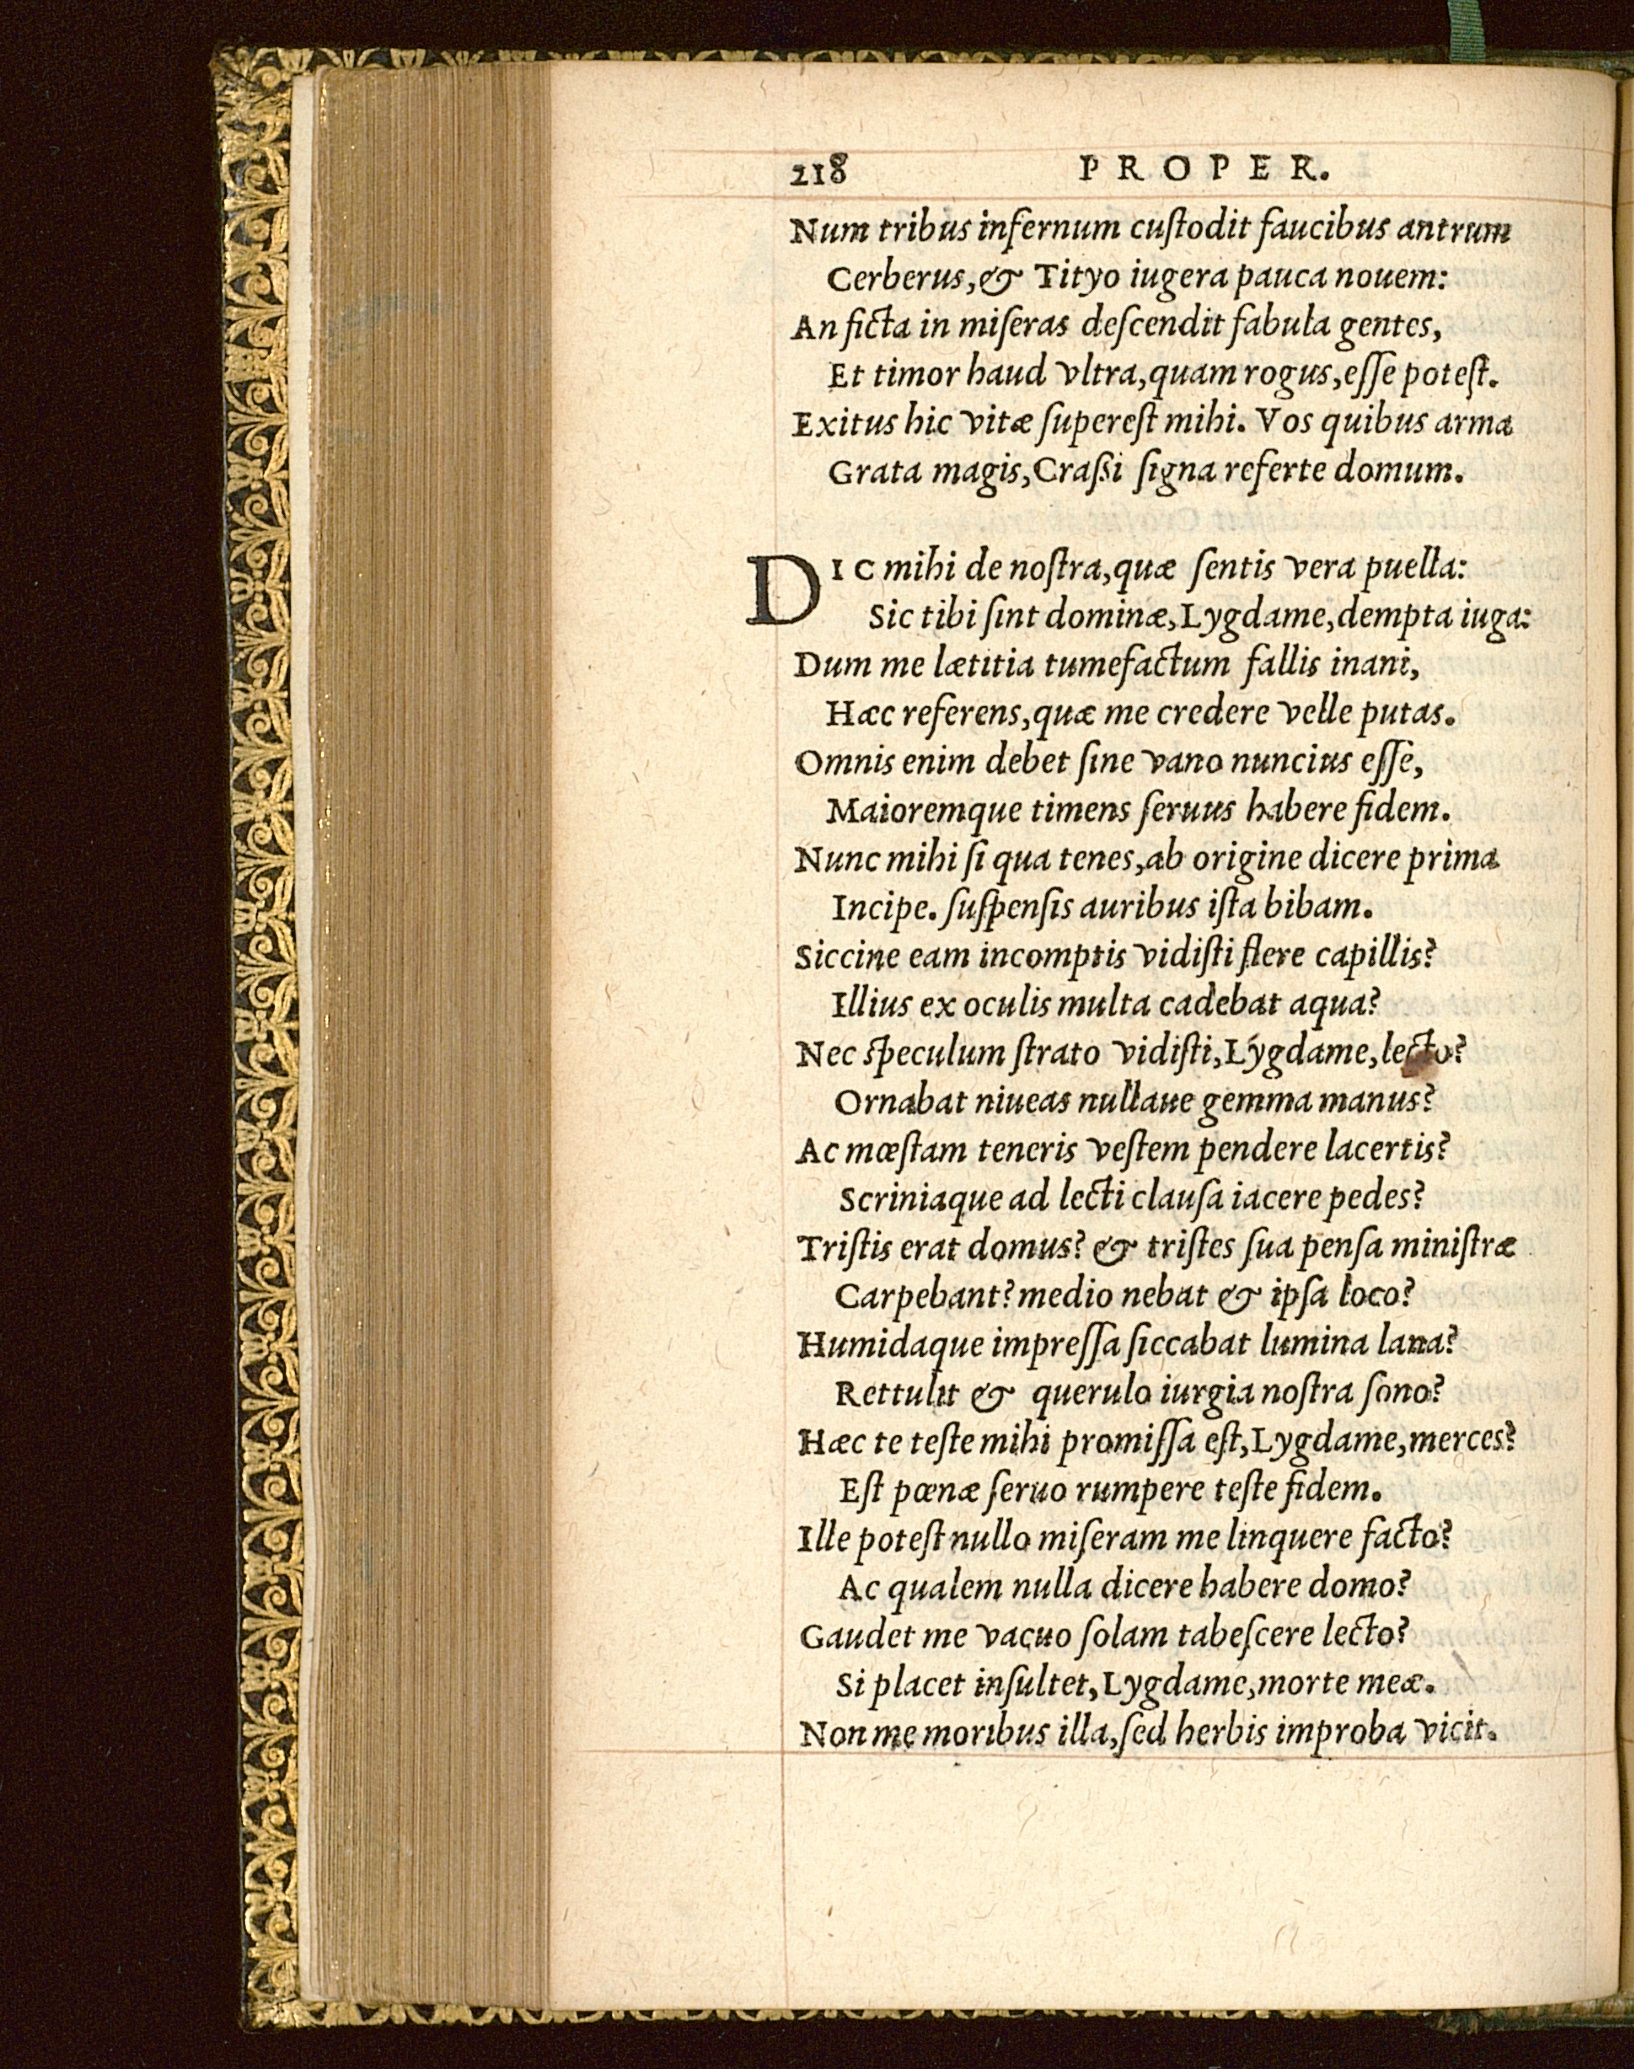 218 PROPER.
Num tribus infernum cuſtodit faucibus antrum
Cerberus, & Tityo iugera pauca nouem:
An ficta in miſeras deſcendit fabula gentes,
Et timor haud vltra, quam rogus, eſſe poteſt.
Exitus hic vitæ ſupereſt mihi. Vos quibus arma
Grata magis, Craßi ſigna referte domum.
DIC mihi de noſtra, quæ ſentis vera puella:
Sic tibi ſint dominæ, Lygdame, dempta iuga:
Dum me lætitia tumefactum fallis inani,
Hæc referens, quæ me credere velle putas.
Omnis enim debet ſine vano nuncius eſſe,
Maioremque timens ſeruus habere fidem.
Nunc mihi ſi qua tenes, ab origine dicere prima
Incipe. ſuſpenſis auribus iſta bibam.
Siccine eam incomptis vidiſti flere capillis?
Illius ex oculis multa cadebat aqua?
Nec ſpeculum ſtrato vidiſti, Lygdame, lecto?
Ornabat niueas nullaue gemma manus?
Ac mœſtam teneris veſtem pendere lacertis?
Scriniaque ad lecti clauſa iacere pedes?
Triſtis erat domus? & triſtes ſua penſa miniſtræ
Carpebant? medio nebat & ipſa loco?
Humidaque impreſſa ſiccabat lumina lana?
Rettulit & querulo iurgia noſtra ſono?
Hæc te teſte mihi promiſſa eſt, Lygdame, merces?
Eſt pœnæ ſeruo rumpere teſte fidem.
Ille poteſt nullo miſeram me linquere facto?
Ac qualem nulla dicere habere domo?
Gaudet me vacuo ſolam tabeſcere lecto?
Si placet inſultet, Lygdame, morte meæ.
Non me moribus illa, ſed herbis improba vicit.